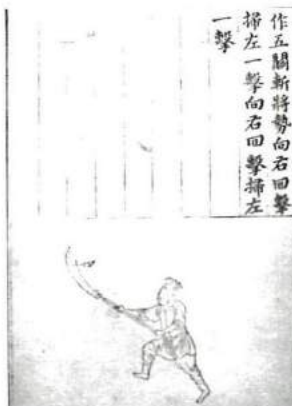 作五關斬將勢向右回擊
掃左一擊向右回擊掃左
一擊